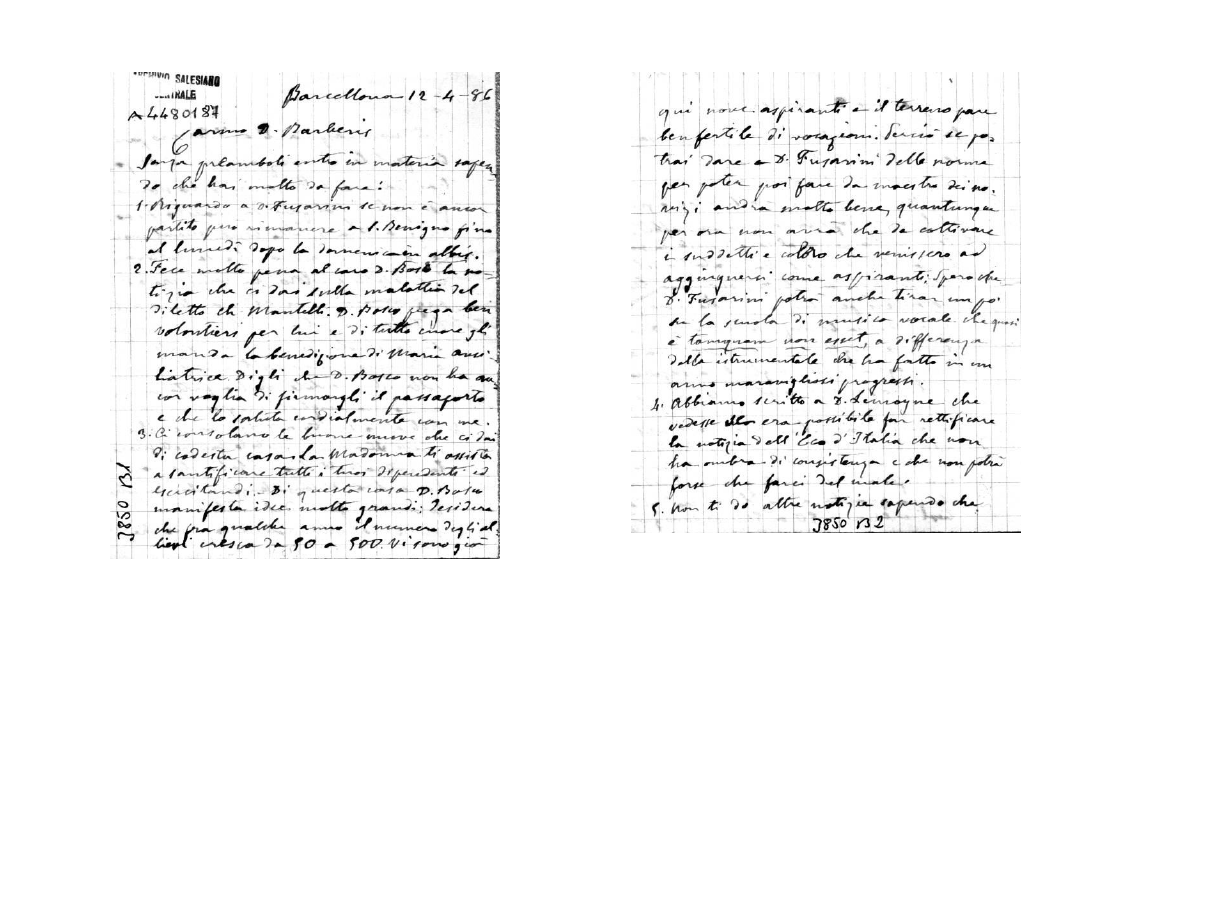 SALESIANO
A 4480187
Barcellona 12-4-86
Carmo D. Barberis
Senza preamboli entro in materia sapen
do che hai molto da fare:
1. Riguardo a D. Fusarini se non è ancor
partito può rimanere a S. Benigno fino
al lunedì dopo la domenica in albis.
2. Fece molta pena al caro D. Bosco la no-
tizia che ci dai sulla malattia del
diletto Ch. Mantelli. D. Bosco prega ben
volontieri per lui e di tutto cuore gli
manda la benedizione di Maria ausi-
liatrice Digli che D. Bosco non ha an-
cor voglia di firmargli il passaporto
e che lo saluta cordialmente con me.
3. Ci consolano le buone nuove che ci dai
di codesta casa. La Madonna ti assista
a santificare tutti i tuoi dipendenti ed
esercitandi. Di questa casa D. Bosco
manifesta idee molto grandi; desidera
che fra qualche anno il numero degli al-
lievi cresca da 50 a 500. Vi sono già
3850 B1
qui nove aspiranti e il terreno pare
ben fertile di vocazioni. Perciò se po-
trai dare a D. Fusarini delle norme
per poter poi fare da maestro dei no-
vizi andrà molto bene, quantunque
per ora non avrà che da coltivare
i suddetti e coloro che venissero ad
aggiungersi come aspiranti. Spero che
D. Fusarini potrà anche tirar un po'
su la scuola di musica vocale che quasi
è tamquam non esset, a differenza
della istrumentale che ha fatto in un
anno maravigliosi progressi.
4. Abbiamo scritto a D. Lemoyne che
vedesse se era possibile far rettificare
la notizia dell'Eco d'Italia che non
ha ombra di consistenza e che non potrà
forse che farci del male.
5. Non ti do altre notizie sapendo che
3850 B2